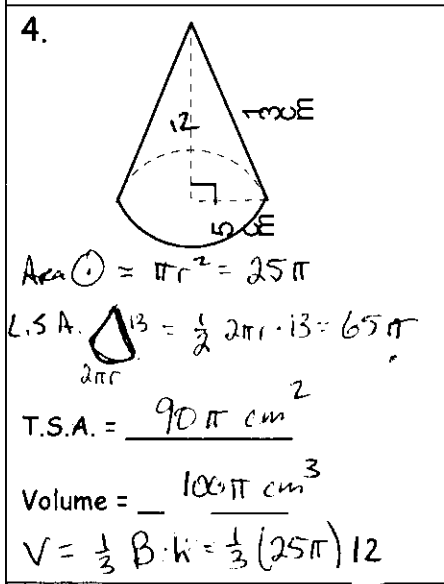 4.
12
13 cm
5 cm
Area ⊙ = πr² = 25π
L.S A. 13 = ½ 2πr · 13 = 65π
2πr
T.S.A. = 90π cm²
Volume = 100π cm³
V = ⅓ B·h = ⅓ (25π) 12